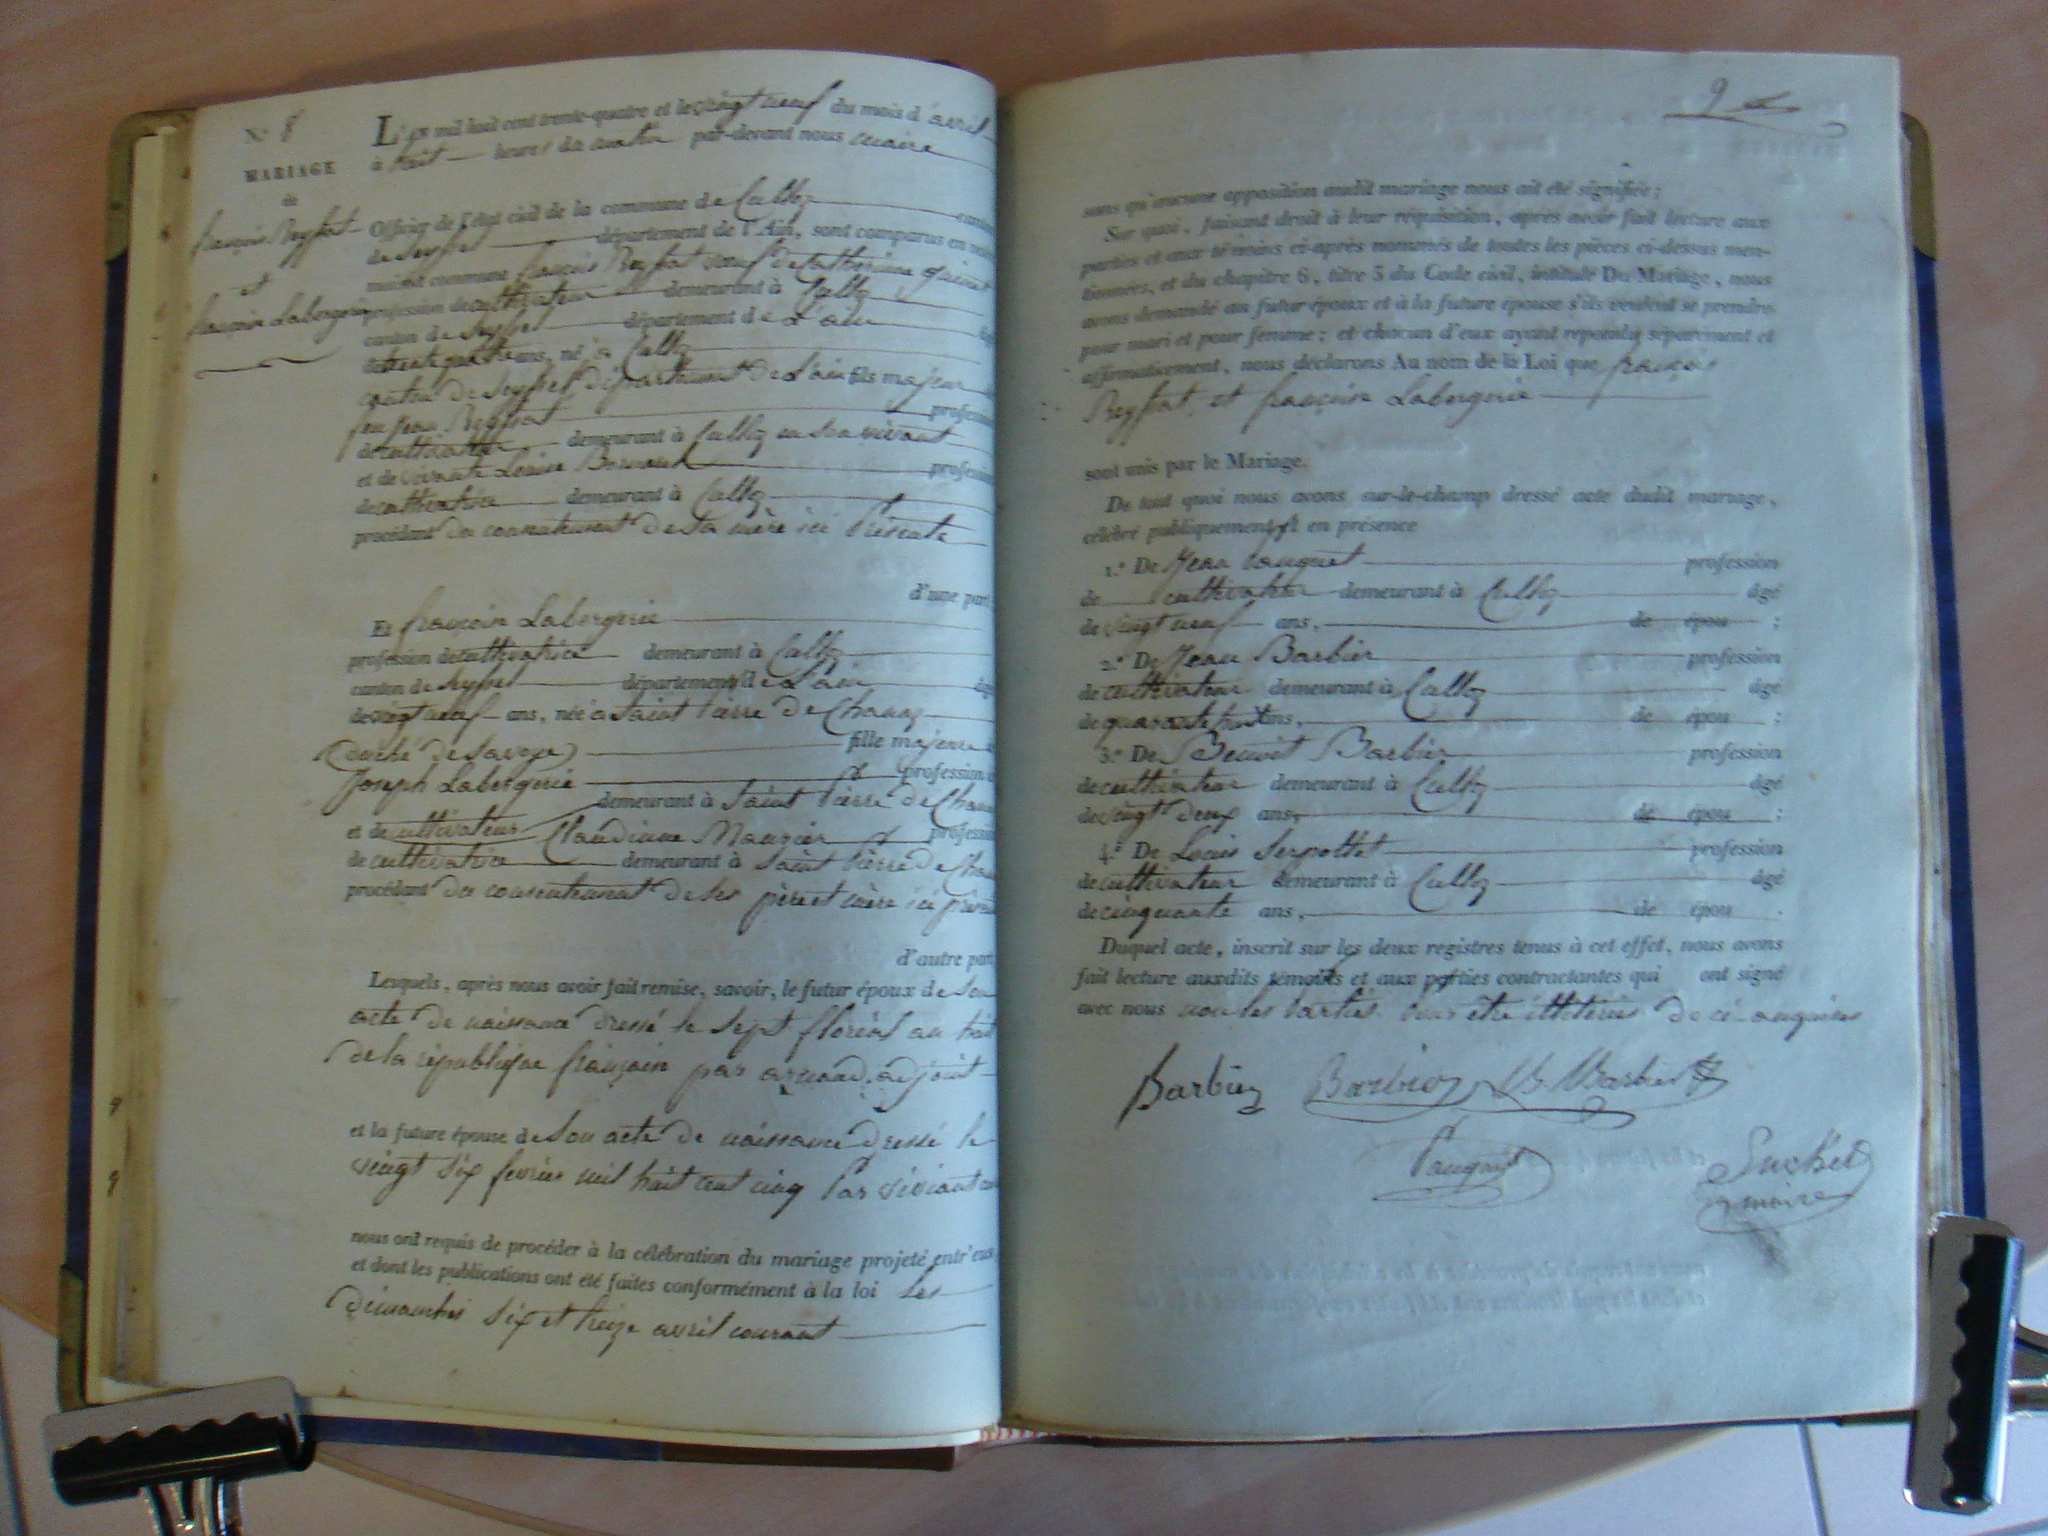 N.° 8
MARIAGE
de
françois Reyffat
et
françoise Labergerie
L'an mil huit cent trente-quatre et le vingt neuf du mois d'avril
à huit heures du matin par-devant nous maire
Officier de l'état civil de la commune de Culloz canton
de Seyssel département de l'Ain, sont comparus en notre
maison commune françois Reyffat veuf de Catherine
profession de cultivateur demeurant à Culloz
canton de Seyssel département de L'ain âgé
de trente quatre ans, né à Culloz
canton de Seyssel département de L'ain fils majeur
feu Jean Reyffat profession
de cultivateur demeurant à Culloz en son vivant
et de vivante Louise profession
de cultivatrice demeurant à Culloz
procédant du consentement de sa mère ici Présente
d'une part
Et françoise Labergerie
profession de cultivatrice demeurant à Culloz
canton de Seyssel département de L'ain âgé
de vingt neuf ans, née à Saint Pierre de Chanaz
Duché de Savoye fille majeure
Joseph Labergerie profession
demeurant à Saint Pierre de
et de cultivateur Claudine profession
de cultivatrice demeurant à Saint Pierre de
procédant du consentement de ses père et mère ici
d'autre part
Lesquels, après nous avoir fait remise, savoir, le futur époux de son
acte de naissance dressé le sept floréal an huit
de la république français par adjoint
et la future épouse de son acte de naissance dressé le
vingt six fevrier mil huit cent cinq Par
nous ont requis de procéder à la célébration du mariage projeté entr'eux
et dont les publications ont été faites conformément à la loi Les
dimanches six et treize avril courant
9
sans qu'aucune opposition audit mariage nous ait été signifiée;
Sur quoi, faisant droit à leur réquisition, après avoir fait lecture aux
parties et aux témoins ci-après nommés de toutes les pièces ci-dessus men-
tionnées, et du chapitre 6, titre 5 du Code civil, intitulé Du Mariage, nous
avons demandé au futur époux et à la future épouse s'ils veulent se prendre
pour mari et pour femme; et chacun d'eux ayant répondu séparément et
affirmativement, nous déclarons Au nom de la Loi que françois
Reyffat et françoise Labergerie
sont unis par le Mariage.
De tout quoi nous avons sur-le-champ dressé acte dudit mariage,
célébré publiquement et en présence
1.° De Jean Pauguet profession
de cultivateur demeurant à Culloz âgé
de vingt neuf ans, de épou ;
2.° De Jean Barbier profession
de cultivateur demeurant à Culloz âgé
de quarante huit ans, de épou ;
3.° De Benoit Barbier profession
de cultivateur demeurant à Culloz âgé
de vingt deux ans, de épou ;
4.° De Louis Serpollet profession
de cultivateur demeurant à Culloz âgé
de cinquante ans, de épou .
Duquel acte, inscrit sur les deux registres tenus à cet effet, nous avons
fait lecture auxdits témoins et aux parties contractantes qui ont signé
avec nous non les Parties Pour être illetérées de ce enquises
Barbier Barbier B. Barbier
Pauguet
Suchet
maire